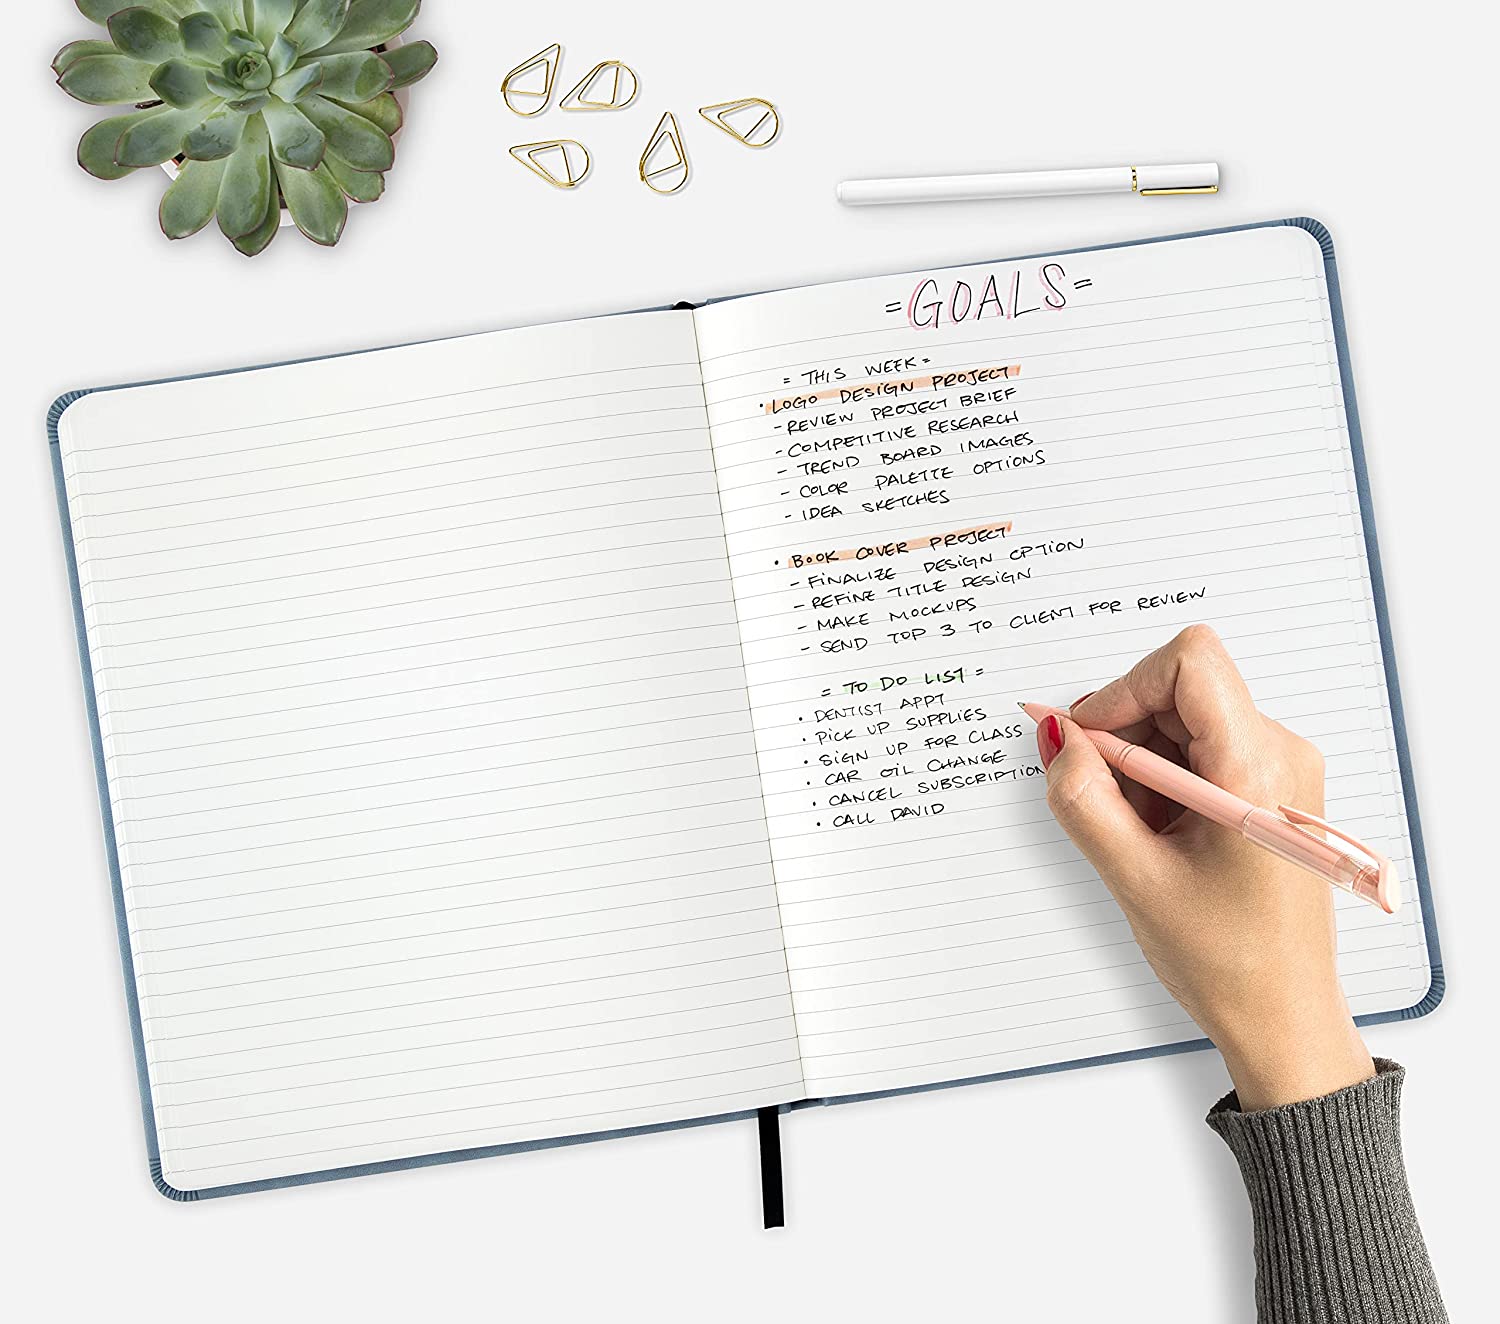 =GOALS=
= THIS WEEK =
• LOGO DESIGN PROJECT
- REVIEW PROJECT BRIEF
- COMPETITIVE RESEARCH
- TREND BOARD IMAGES
- COLOR PALETTE OPTIONS
- IDEA SKETCHES
• BOOK COVER PROJECT
- FINALIZE DESIGN OPTION
- REFINE TITLE DESIGN
- MAKE MOCKUPS
- SEND TOP 3 TO CLIENT FOR REVIEW
= TO DO LIST =
• DENTIST APPT
• PICK UP SUPPLIES
• SIGN UP FOR CLASS
• CAR OIL CHANGE
• CANCEL SUBSCRIPTION
• CALL DAVID